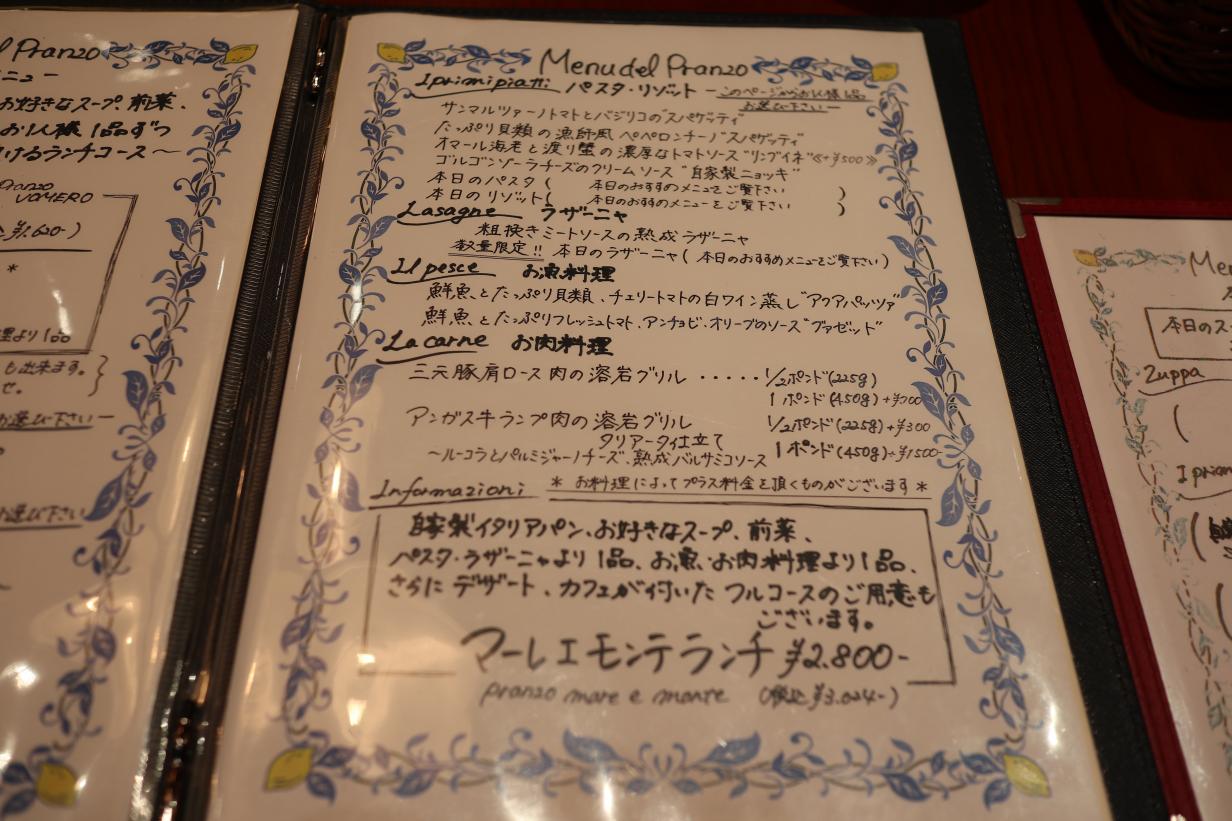 l Pranzo
ニュー
お好きなスープ、前菜、
お1人様 1品ずつ
けるランチコース〜
Pranzo
VOMERO
¥1.620-)
*
理より1品
も出来ます。
せ。
お選び下さいー
お選び下さい
Menu del Pranzo
I primi piatti パスタ・リゾット ーこのページからお1人様1品
お選び下さいー
サンマルツァーノトマトとバジリコの"スパゲッティ"
たっぷり貝類の漁師風ペペロンチーノ"スパゲッティ"
オマール海老と渡り蟹の濃厚なトマトソース"リングイネ"≪+¥500≫
ゴルゴンゾーラチーズのクリームソース"自家製ニョッキ"
本日のパスタ( 本日のおすすめメニューをご覧下さい )
本日のリゾット( 本日のおすすめメニューをご覧下さい )
Lasagne ラザーニャ
粗挽きミートソースの熟成ラザーニャ
数量限定!! 本日のラザーニャ( 本日のおすすめメニューをご覧下さい)
Il pesce お魚料理
鮮魚とたっぷり貝類、チェリートマトの白ワイン蒸し"アクアパッツァ"
鮮魚とたっぷりフレッシュトマト、アンチョビ・オリーブのソース"グァゼット"
La carne お肉料理
三元豚肩ロース肉の溶岩グリル ・・・・・1/2ポンド(225g)
1ポンド(450g)+¥700
アンガス牛ランプ肉の溶岩グリル 1/2ポンド(225g)+¥300
タリアータ仕立て 1ポンド(450g)+¥1500-
〜ルーコラとパルミジャーノチーズ、熟成バルサミコソース
Informazioni * お料理によってプラス料金を頂くものがございます *
自家製イタリアパン、お好きなスープ、前菜、
パスタ・ラザーニャより1品、お魚・お肉料理より1品、
さらにデザート、カフェが付いたフルコースのご用意も
ございます。
マーレエモンテランチ ¥2.800-
pranzo mare e monte (税込¥3.024-)
Me
本日のス
Zuppa
(
I prim
(